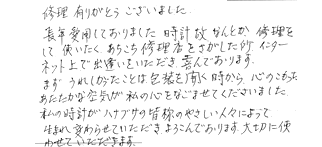 修理 有りがとう ございました.
長年愛用しておりました 時計 故 なんとか 修理を
して 使いたく、あちこち修理店をさがした所 インター
ネット上で出逢いをいただき、喜んでおります.
まず うれしかったことは 包装を開く時から 心のこもった
あたたかな空気が 私の心をなごませてくださいました.
私の時計が ハナブサの皆称のやさしい人々によって
生まれ変わらせていただき、よろこんでおります. 大切に使
わせていただきます.